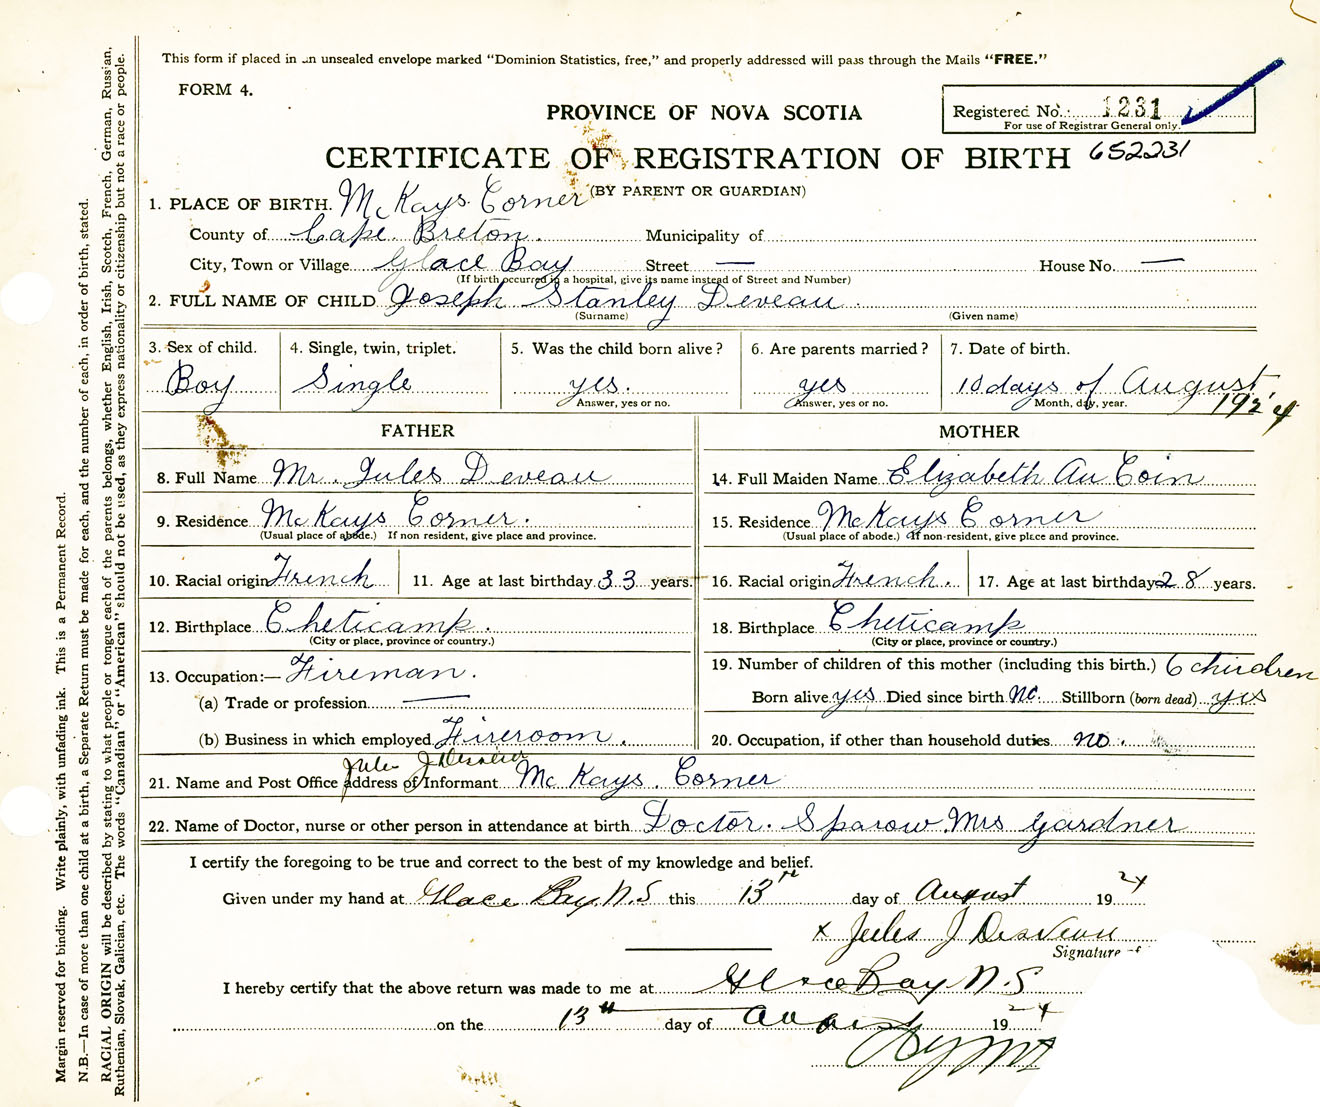 This form if placed in an unsealed envelope marked "Dominion Statistics, free," and properly addressed will pass through the Mails "FREE."
FORM 4.
PROVINCE OF NOVA SCOTIA
Registered No. 1231
For use of Registrar General only.
CERTIFICATE OF REGISTRATION OF BIRTH 652231
(BY PARENT OR GUARDIAN)
1. PLACE OF BIRTH. McKays Corner
County of Cape Breton. Municipality of
City, Town or Village Glace Bay Street — House No. —
(If birth occurred in a hospital, give its name instead of Street and Number)
2. FULL NAME OF CHILD Joseph Stanley Deveau.
(Surname) (Given name)
3. Sex of child. 4. Single, twin, triplet. 5. Was the child born alive? 6. Are parents married? 7. Date of birth.
Boy Single yes. yes 10 days of August
Answer, yes or no. Answer, yes or no. Month, day, year. 1924
FATHER MOTHER
8. Full Name Mr. Jules Deveau 14. Full Maiden Name Elizabeth Au Coin
9. Residence McKays Corner. 15. Residence McKays Corner
(Usual place of abode.) If non resident, give place and province. (Usual place of abode.) If non-resident, give place and province.
10. Racial origin French 11. Age at last birthday 33 years. 16. Racial origin French. 17. Age at last birthday 28 years.
12. Birthplace Cheticamp. 18. Birthplace Cheticamp
(City or place, province or country.) (City or place, province or country.)
13. Occupation:— Fireman. 19. Number of children of this mother (including this birth.) 6 children
(a) Trade or profession — Born alive yes Died since birth no. Stillborn (born dead) yes
(b) Business in which employed Fireroom. 20. Occupation, if other than household duties no.
Jules J Desveau
21. Name and Post Office address of Informant McKays. Corner
22. Name of Doctor, nurse or other person in attendance at birth Doctor. Sparow. Mrs Gardner
I certify the foregoing to be true and correct to the best of my knowledge and belief.
Given under my hand at Glace Bay. N.S this 13 day of August 1924
x Jules J Desveau
Signature of
I hereby certify that the above return was made to me at Glace Bay N.S
on the 13th day of August 1924
Margin reserved for binding. Write plainly, with unfading ink. This is a Permanent Record.
N.B.—In case of more than one child at a birth, a Separate Return must be made for each, and the number of each, in order of birth, stated.
RACIAL ORIGIN will be described by stating to what people or tongue each of the parents belongs, whether English, Irish, Scotch, French, German, Russian,
Ruthenian, Slovak, Galician, etc. The words "Canadian" or "American" should not be used, as they express nationality or citizenship but not a race or people.